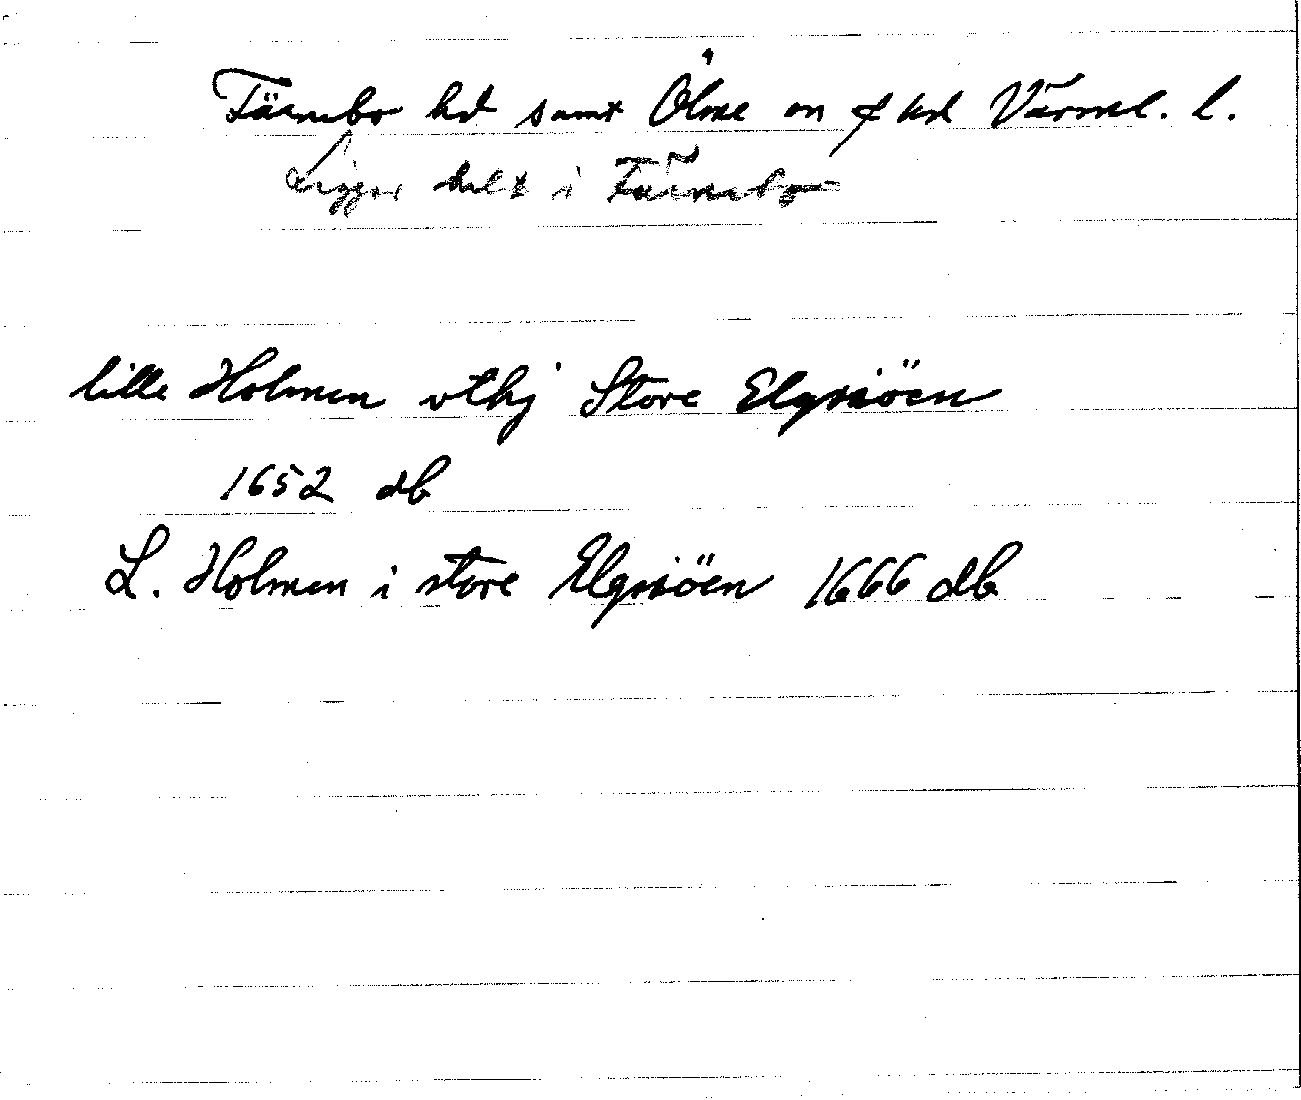 Färnebo hd samt Ölme en f hd Värml. l.
Ligger helt i Färnebo
lille Holmen vthj Store Elgsiöen
1652 db
L. Holmen i store Elgsiöen 1666 db